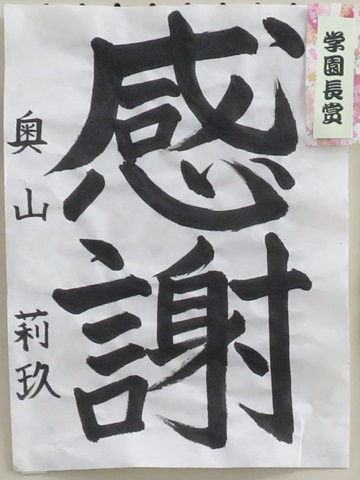 学園長賞
感謝
奥山 莉玖